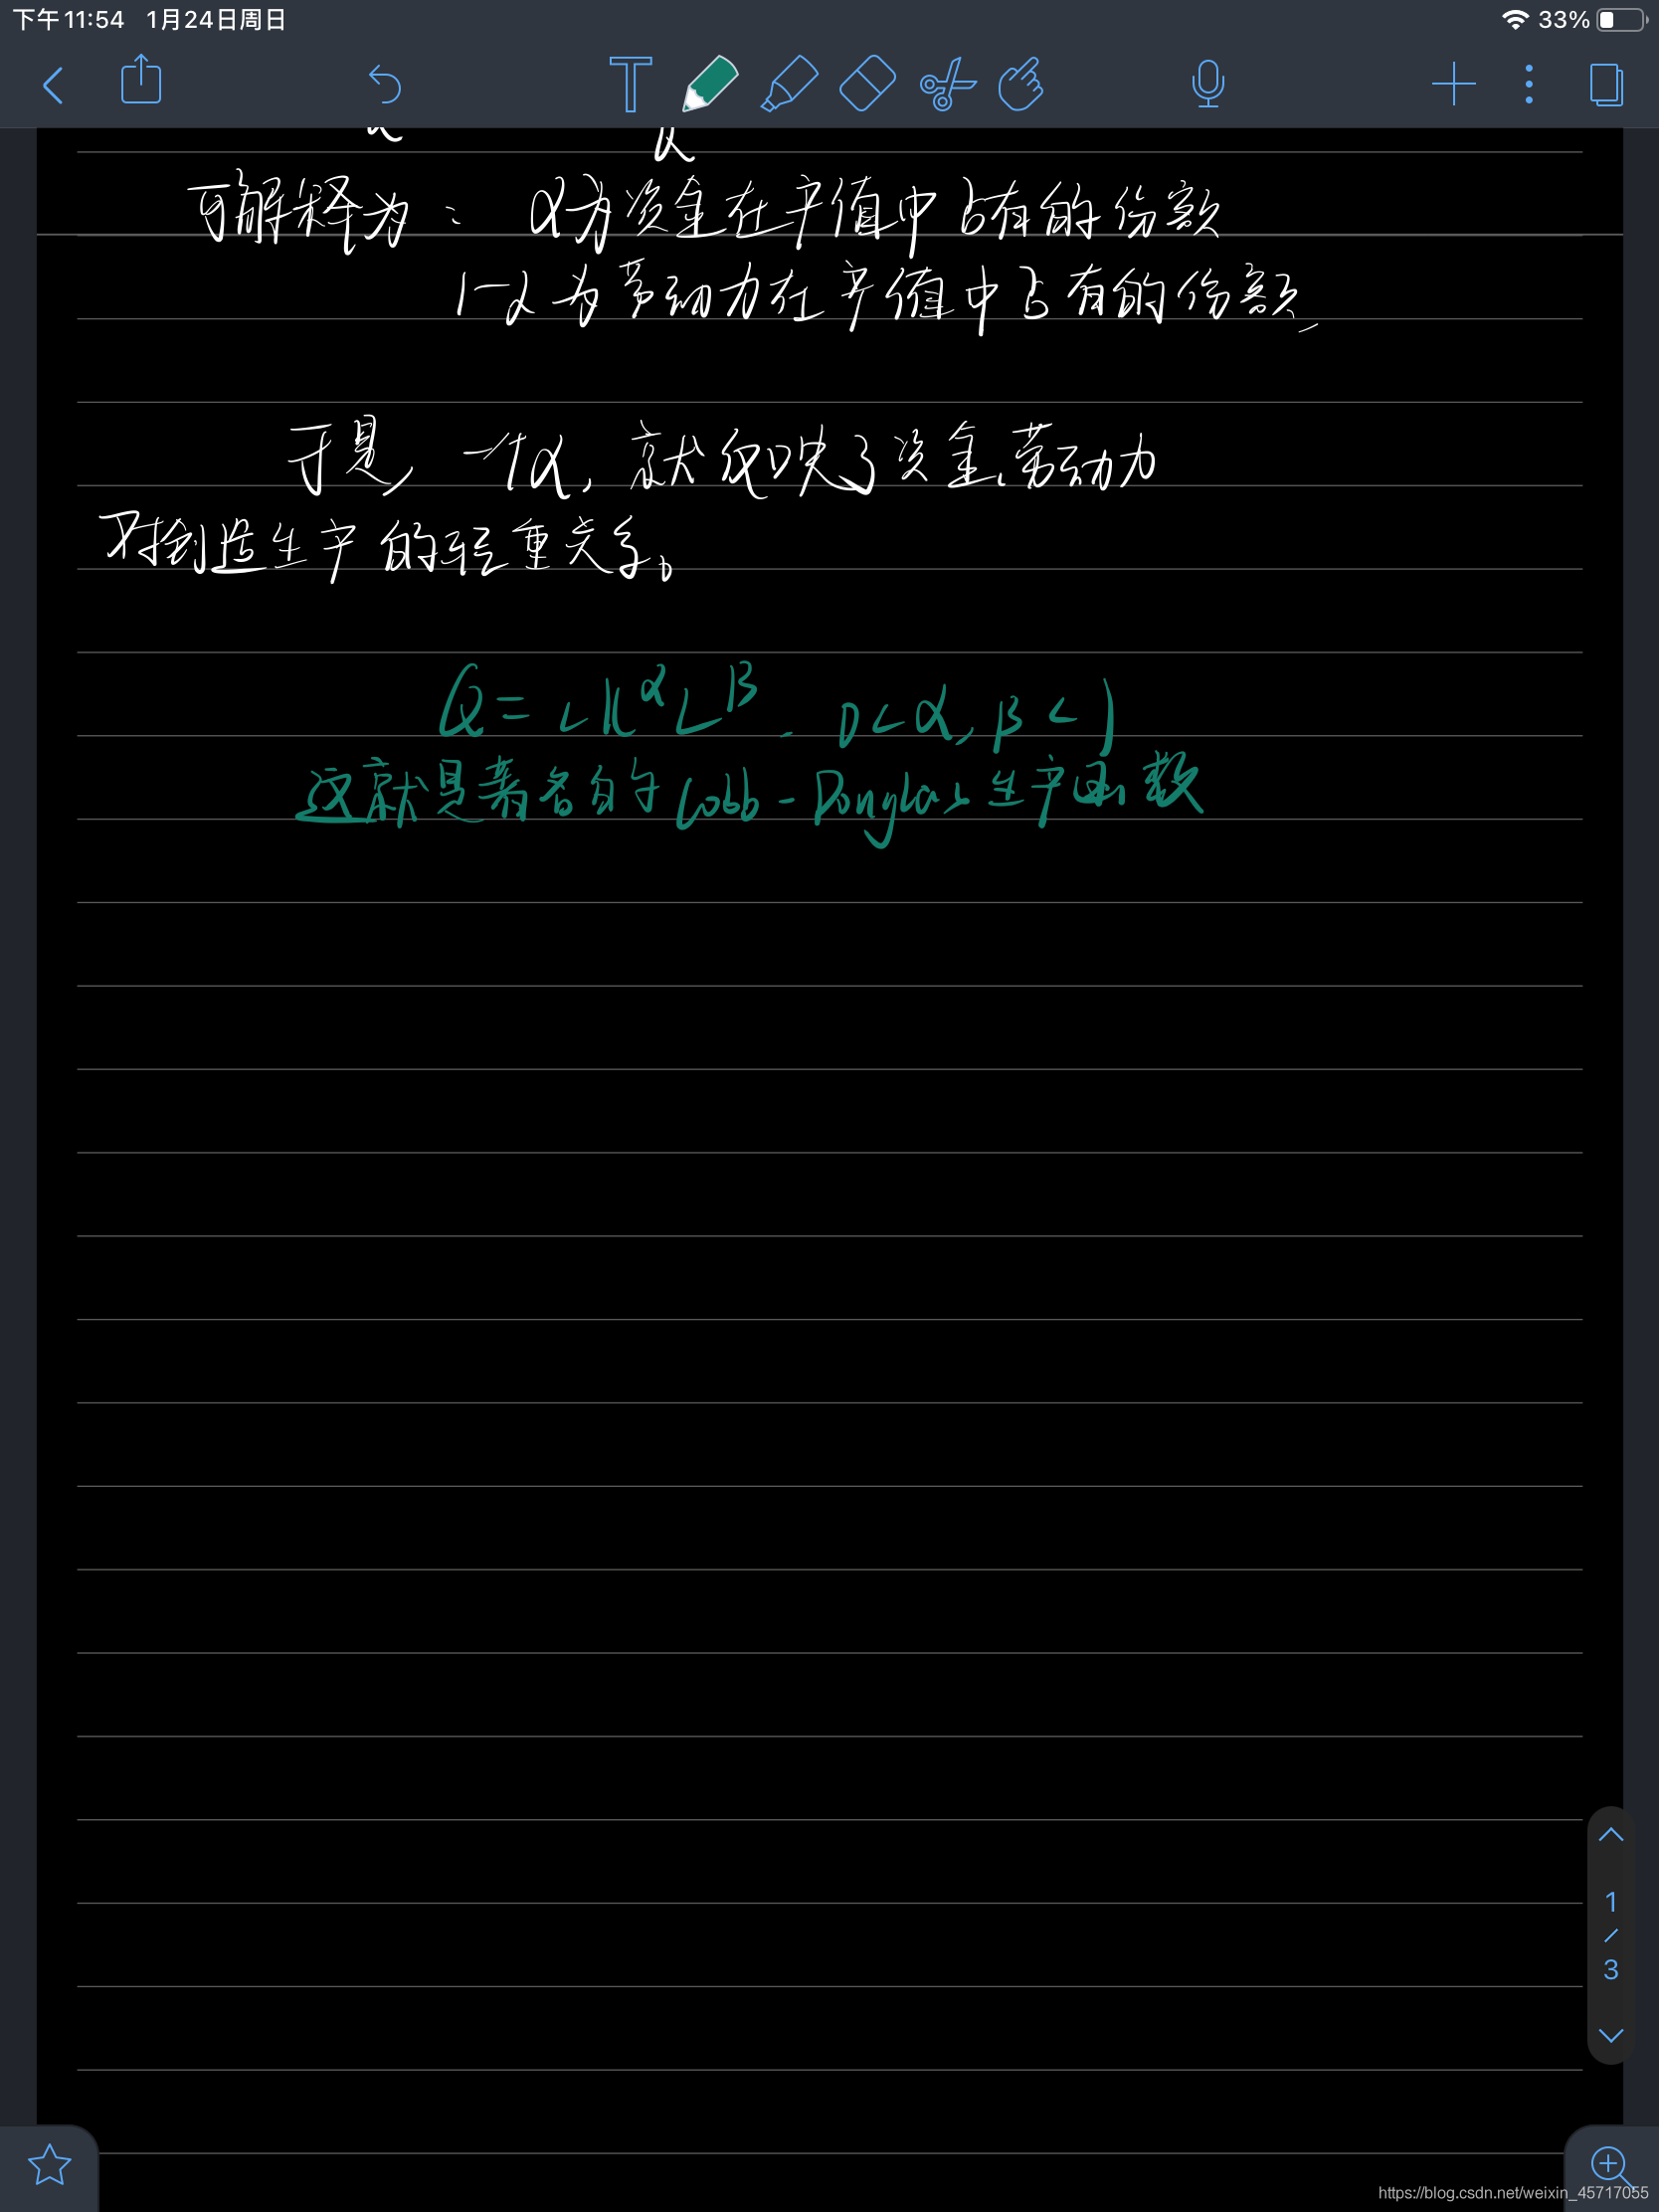 下午11:54 1月24日周日 33%
可解释为： α为资金在产值中占有的份额
1-α为劳动力在产值中占有的份额
于是，一个α，就反映了资金、劳动力
对创造生产的轻重关系。
Q = cK^α L^β . 0<α, β<1
这就是著名的Cobb-Douglas生产函数
1
/
3
https://blog.csdn.net/weixin_45717055